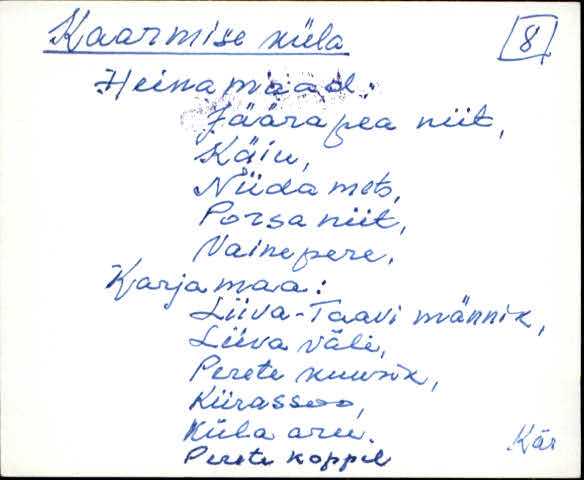 Kaarmise küla
8.
Heinamaad:
Jäärapea niit,
Käiu,
Niidamets,
Porsaniit,
Vainepere.
Karjamaa:
Liiva-Taavi männik,
Liiva väli,
Perete kuusik,
Kiirassoo,
Küla aru.
Perete koppel
Kär